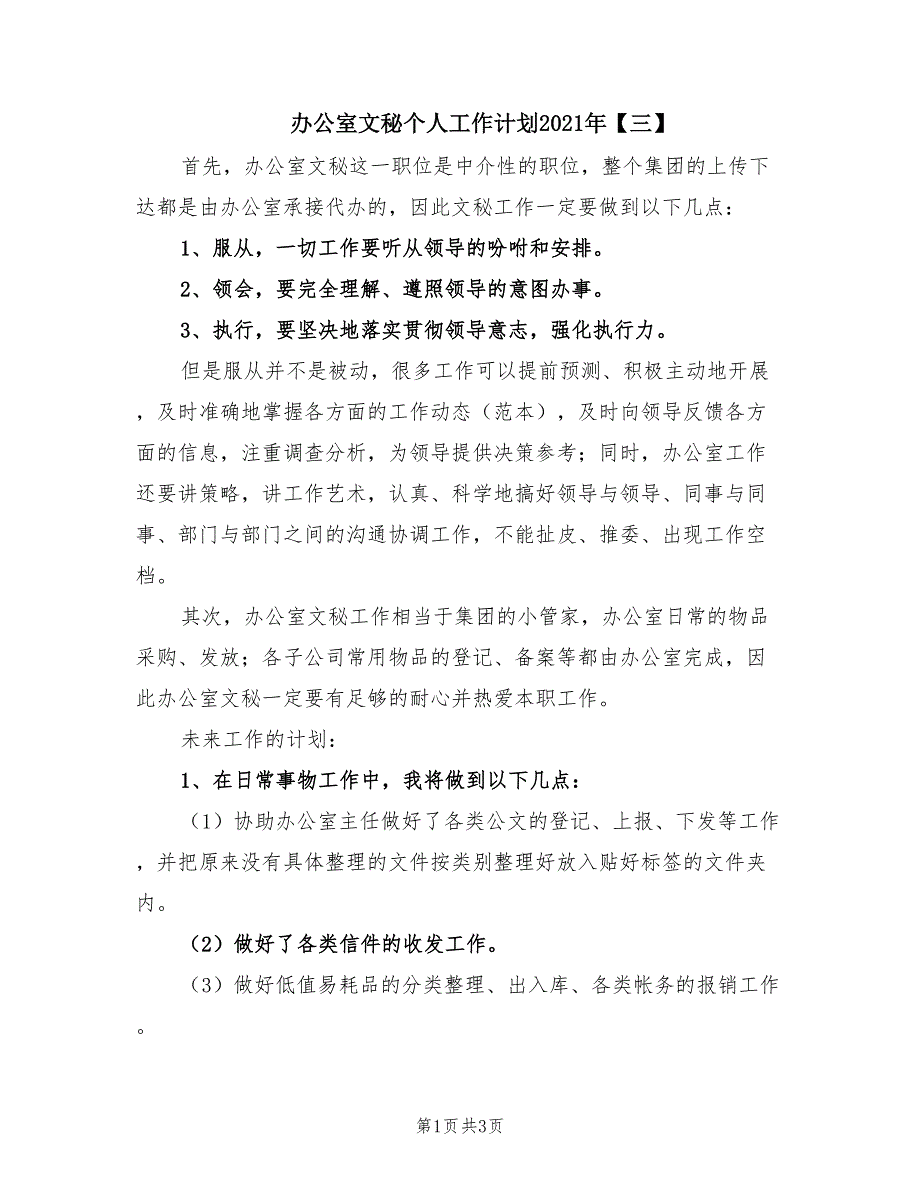 办公室文秘个人工作计划2021年【三】
首先，办公室文秘这一职位是中介性的职位，整个集团的上传下
达都是由办公室承接代办的，因此文秘工作一定要做到以下几点：
1、服从，一切工作要听从领导的吩咐和安排。
2、领会，要完全理解、遵照领导的意图办事。
3、执行，要坚决地落实贯彻领导意志，强化执行力。
但是服从并不是被动，很多工作可以提前预测、积极主动地开展
，及时准确地掌握各方面的工作动态（范本），及时向领导反馈各方
面的信息，注重调查分析，为领导提供决策参考；同时，办公室工作
还要讲策略，讲工作艺术，认真、科学地搞好领导与领导、同事与同
事、部门与部门之间的沟通协调工作，不能扯皮、推委、出现工作空
档。
其次，办公室文秘工作相当于集团的小管家，办公室日常的物品
采购、发放；各子公司常用物品的登记、备案等都由办公室完成，因
此办公室文秘一定要有足够的耐心并热爱本职工作。
未来工作的计划：
1、在日常事物工作中，我将做到以下几点：
（1）协助办公室主任做好了各类公文的登记、上报、下发等工作
，并把原来没有具体整理的文件按类别整理好放入贴好标签的文件夹
内。
（2）做好了各类信件的收发工作。
（3）做好低值易耗品的分类整理、出入库、各类帐务的报销工作
。
第1页 共3页